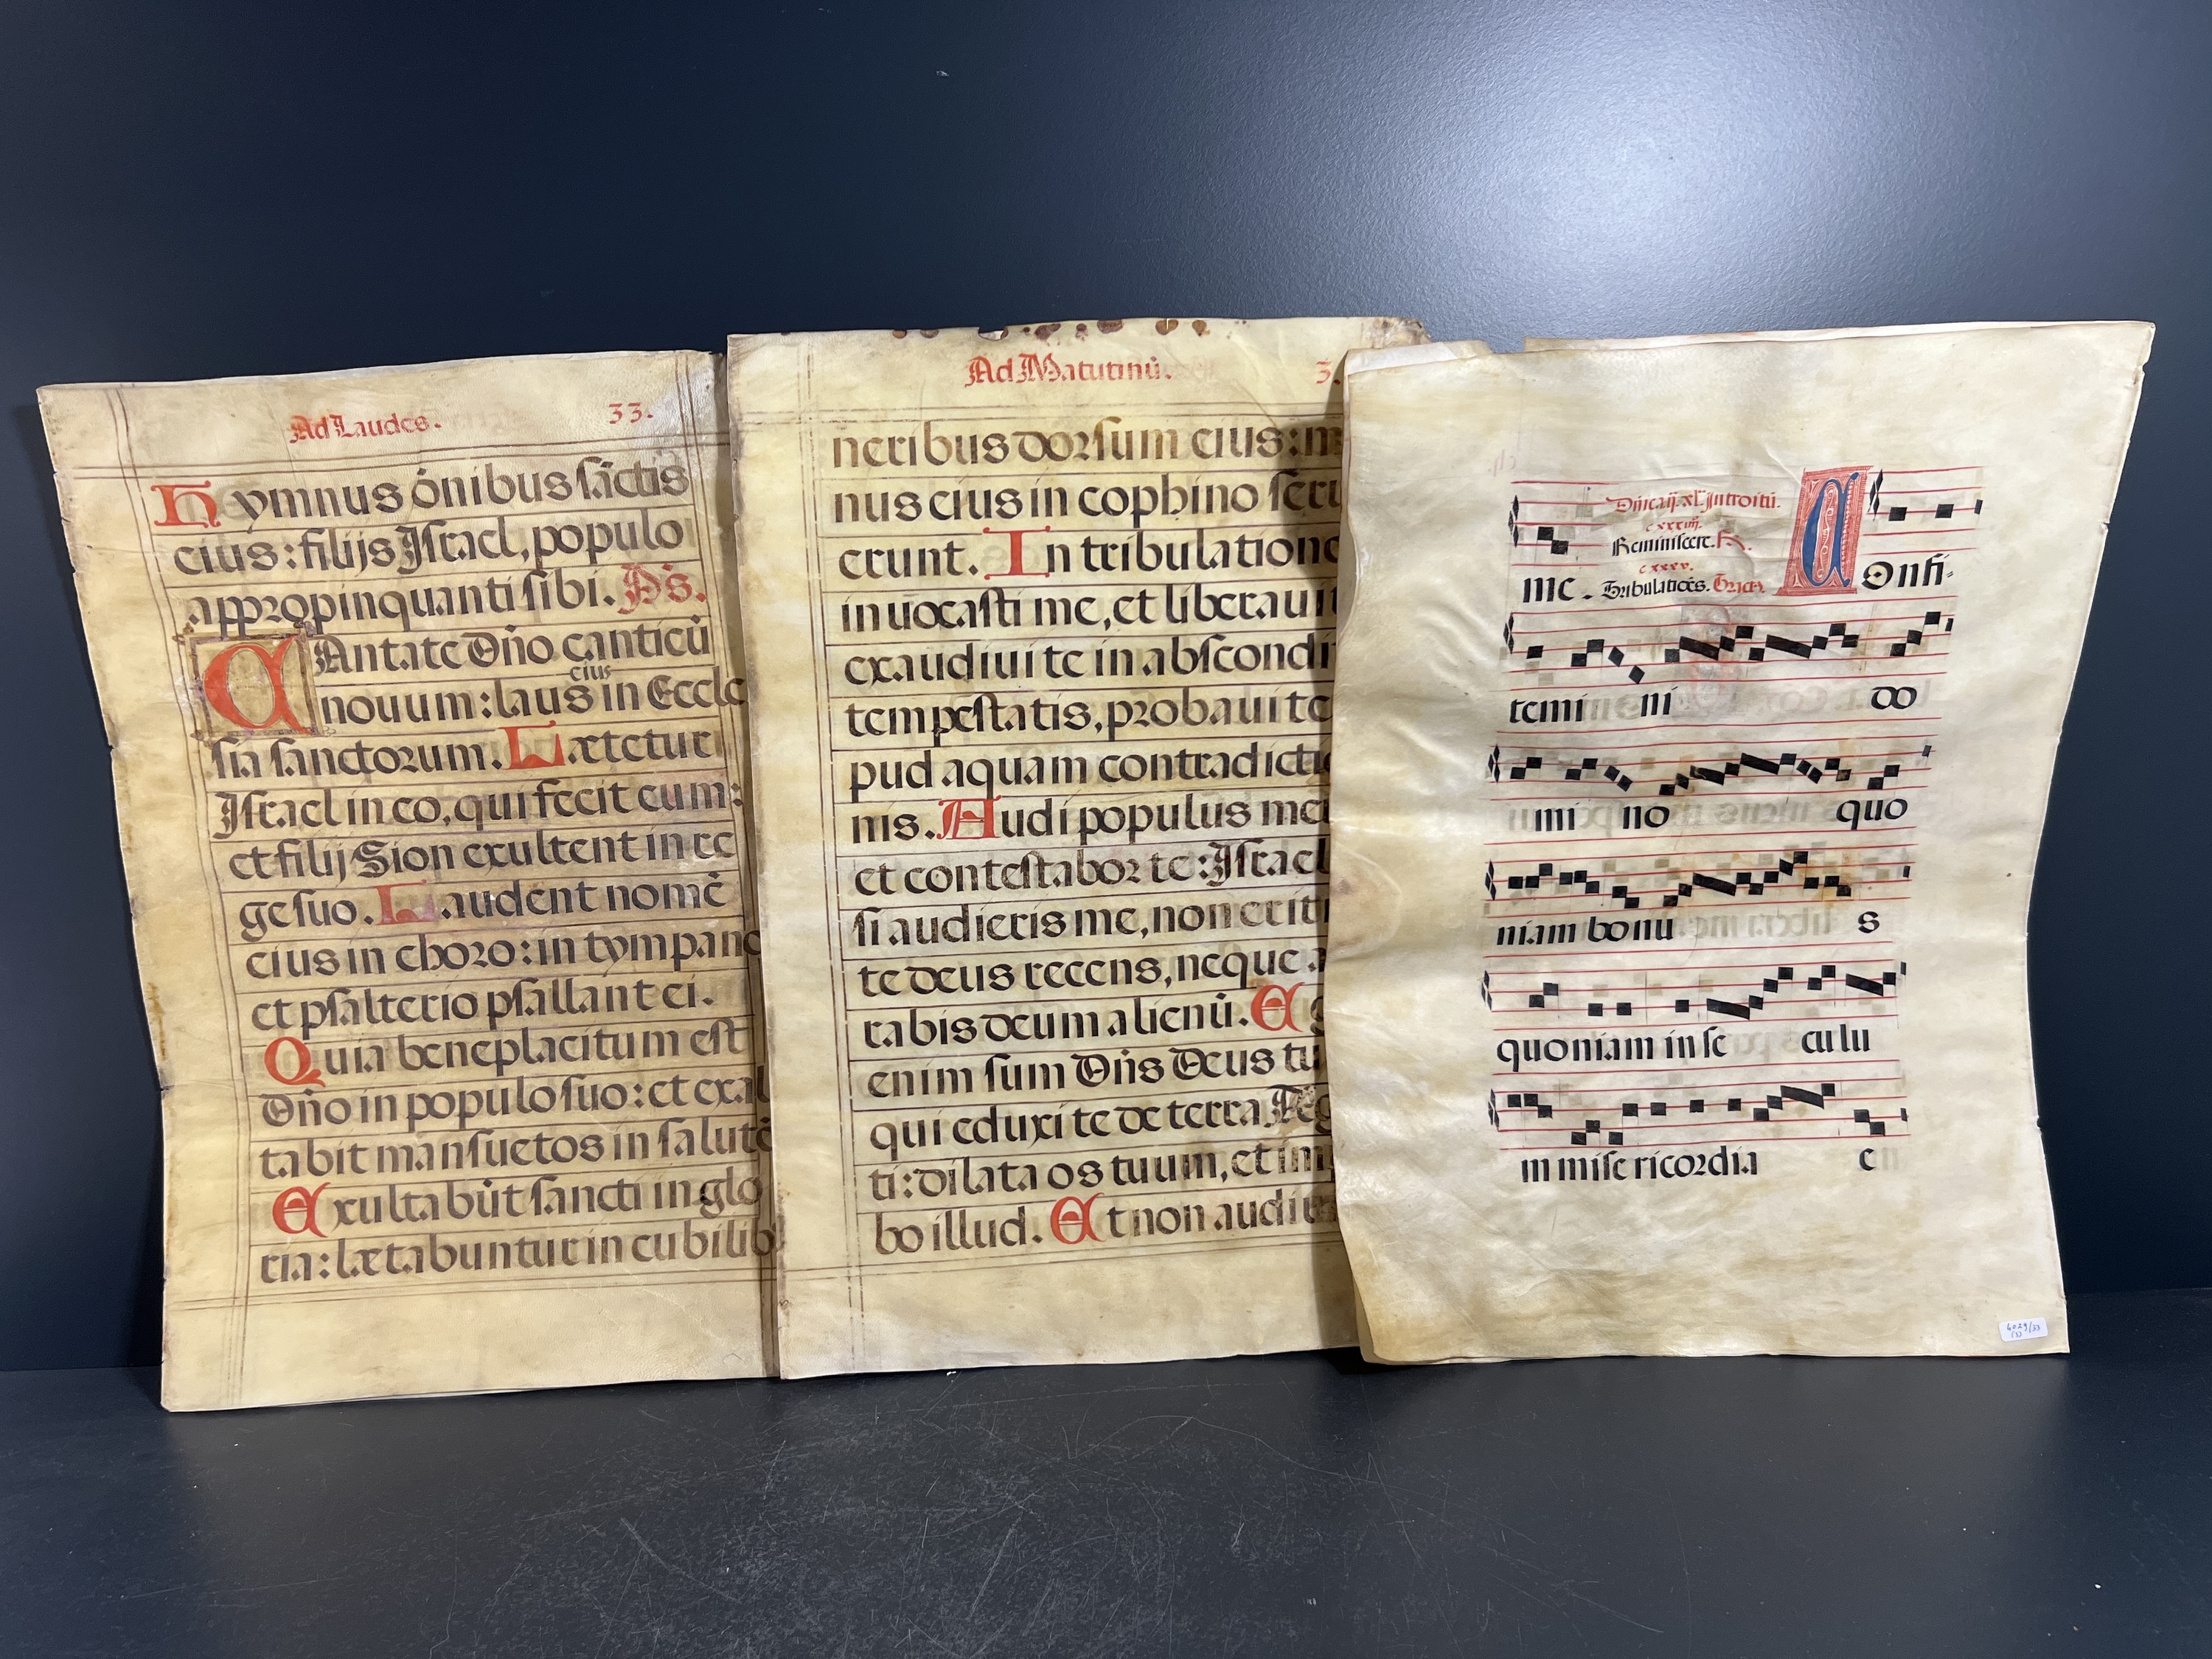 Ad Laudes.
33.
Hymnus ōnibus sāctis
eius: filijs Israel, populo
appropinquanti sibi. Ps.
CAntate Dño canticū
eius
nouum: laus in Eccle
sia sanctorum. Lætetur
Israel in eo, qui fecit eum:
et filij Sion exultent in re
ge suo. Laudent nomē
eius in choro: in tympano
et psalterio psallant ei.
Quia beneplacitum est
Dño in populo suo: et exal
tabit mansuetos in salutē
Exultabūt sancti in glo
ria: lætabuntur in cubilib
Ad Matutinū.
3
neribus dorsum eius: m
nus eius in cophino seru
erunt. In tribulatione
inuocasti me, et liberaui t
exaudiui te in abscondi
tempestatis, probaui te
pud aquam contradictio
nis. Audi populus meu
et contestabor te: Israel
si audieris me, non erit i
te deus recens, neque a
rabis deum alienū. E g
enim sum Dñs Deus tu
qui eduxi te de terra Aeg
ti: dilata os tuum, et imp
bo illud. Et non audiu
Dñica ij. xl. Introitū.
cxxxiiij.
Reminiscere.
cxxxv.
me. Tribulatiões. Grad. Confi-
temini do
mi no quo
niam bonu s
quoniam in se culu
m misericordia e
6029/33
(3)